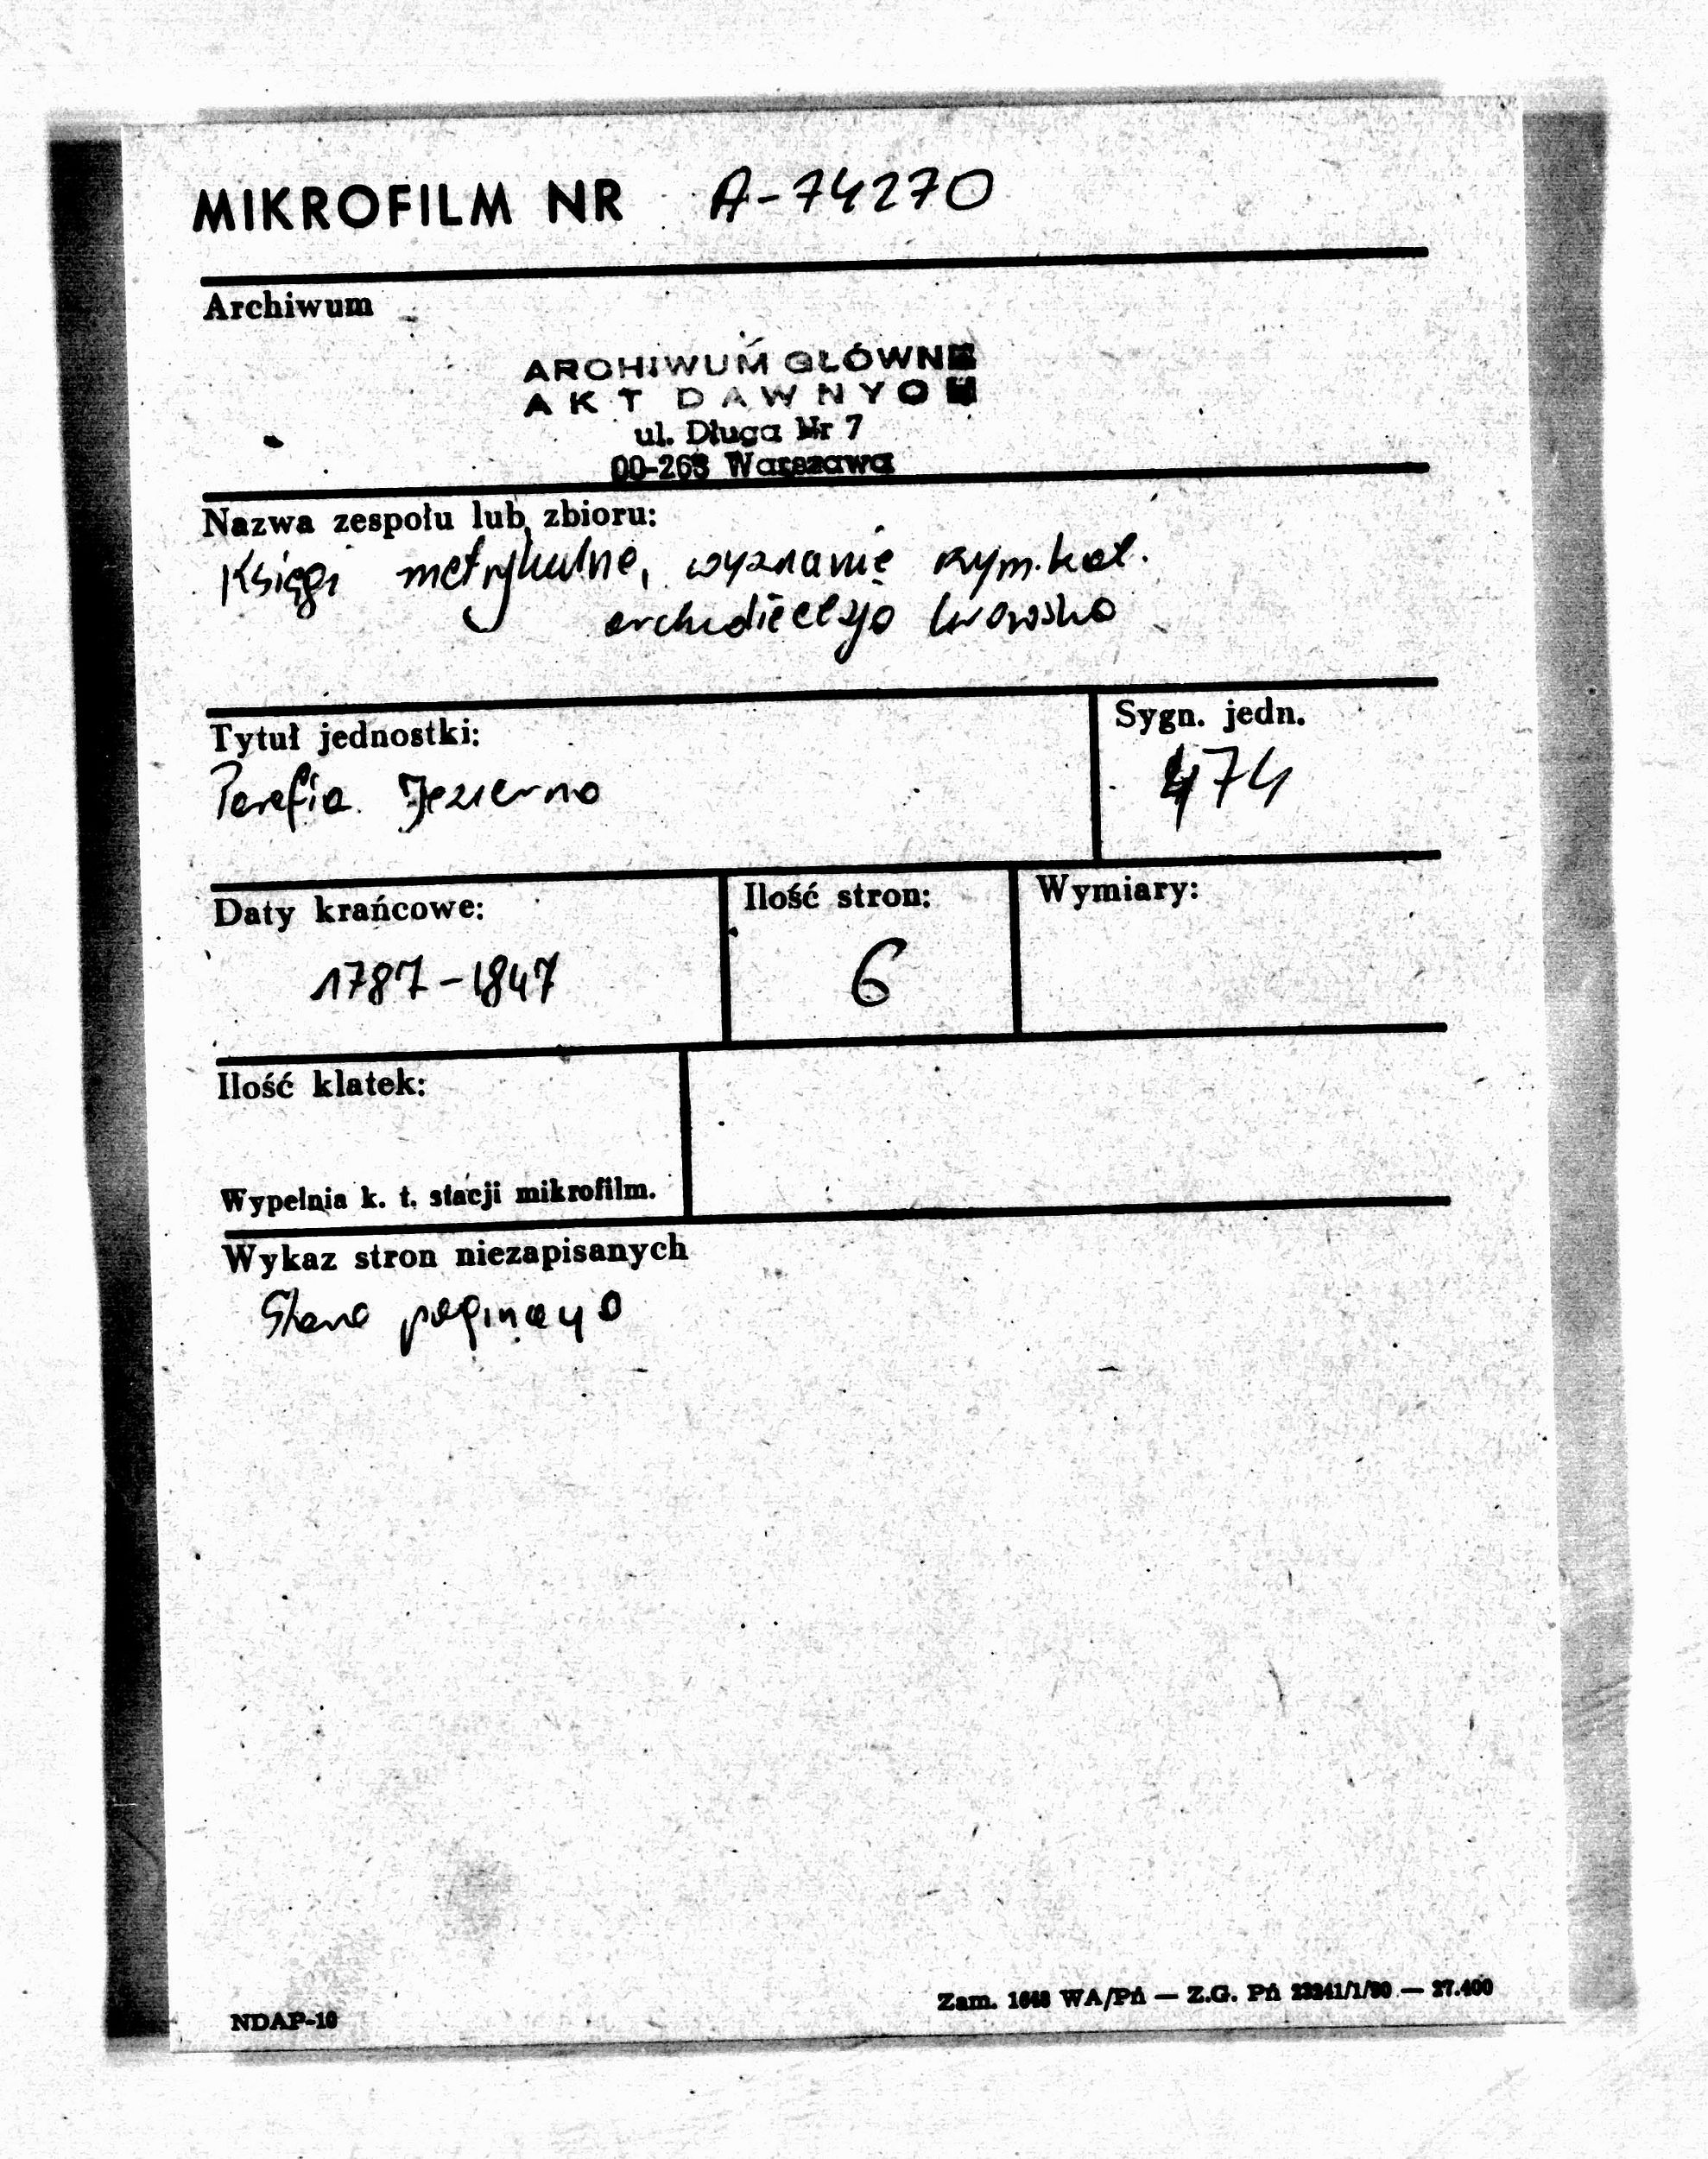 MIKROFILM NR A-74270
Archiwum
ARCHIWUM GŁÓWNE
AKT DAWNYCH
ul. Długa Nr 7
00-263 Warszawa
Nazwa zespołu lub zbioru:
Księgi metrykalne, wyznanie rzym.kat.
archidiecezja lwowska
Tytuł jednostki:
Sygn. jedn.
Parafia Jezierna
474
Daty krańcowe:
Ilość stron:
Wymiary:
1787-1847
6
Ilość klatek:
Wypełnia k. t. stacji mikrofilm.
Wykaz stron niezapisanych
Stara paginacja
NDAP-10
Zam. 1648 WA/Pń — Z.G. Pń — 27.400